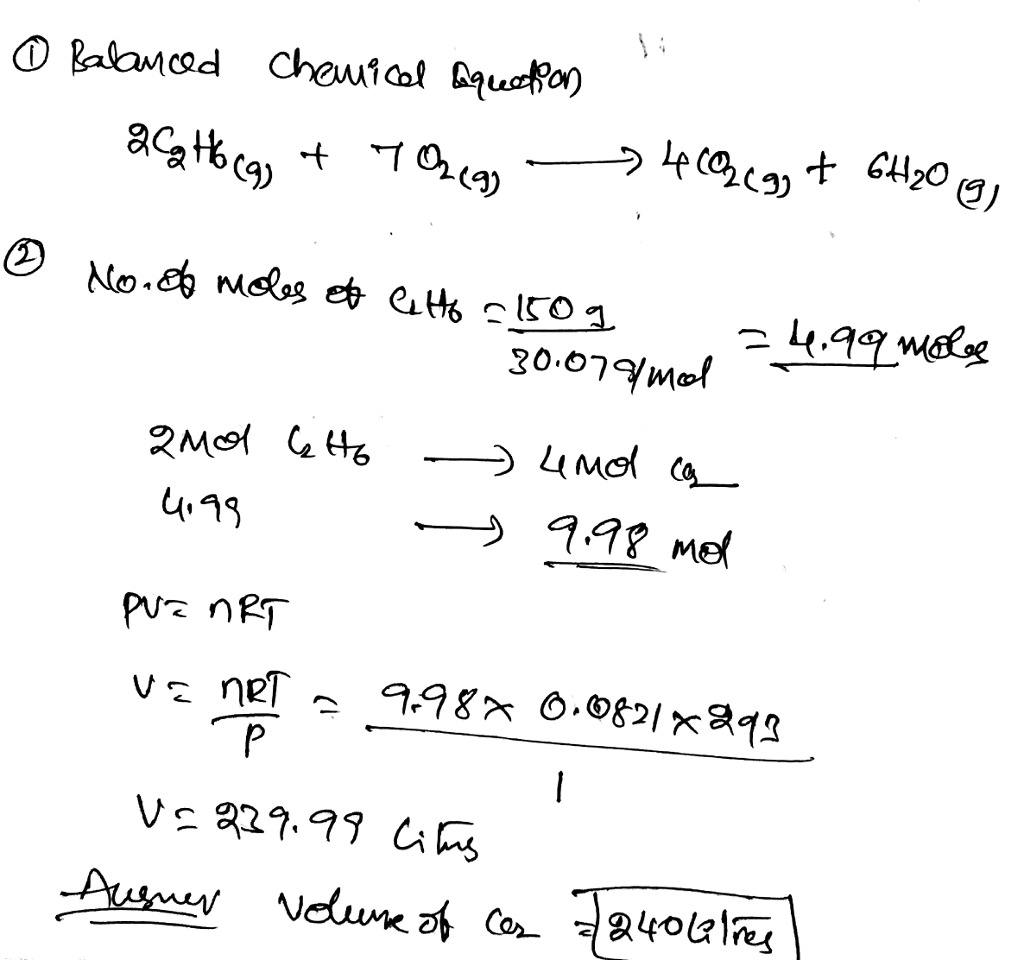 ① Balanced Chemical Equation
2C2H6(g) + 7O2(g) ⟶ 4CO2(g) + 6H2O(g)
② No. of moles of C2H6 = 150 g / 30.07 g/mol = 4.99 moles
2 mol C2H6 ⟶ 4 mol CO2
4.99 ⟶ 9.98 mol
PV = nRT
V = nRT / P = 9.98 × 0.0821 × 293 / 1
V = 239.99 Litres
Answer Volume of CO2 = 240 Litres